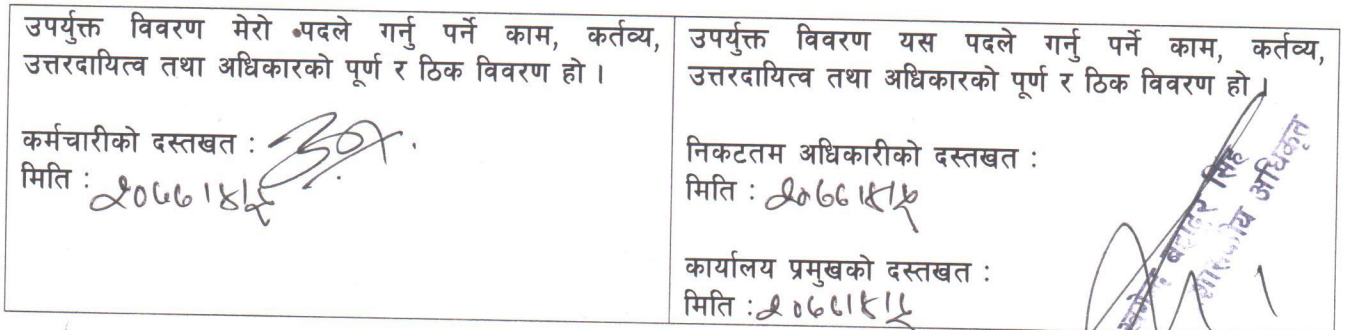 उपर्युक्त विवरण मेरो पदले गर्नु पर्ने काम, कर्तव्य,
उत्तरदायित्व तथा अधिकारको पूर्ण र ठिक विवरण हो ।
कर्मचारीको दस्तखत :
मिति : २०७७।४।५
उपर्युक्त विवरण यस पदले गर्नु पर्ने काम, कर्तव्य,
उत्तरदायित्व तथा अधिकारको पूर्ण र ठिक विवरण हो ।
निकटतम अधिकारीको दस्तखत :
मिति : २०७७।४।५
कार्यालय प्रमुखको दस्तखत :
मिति : २०७७।४।५
बहादुर सिंह
अधिकृत